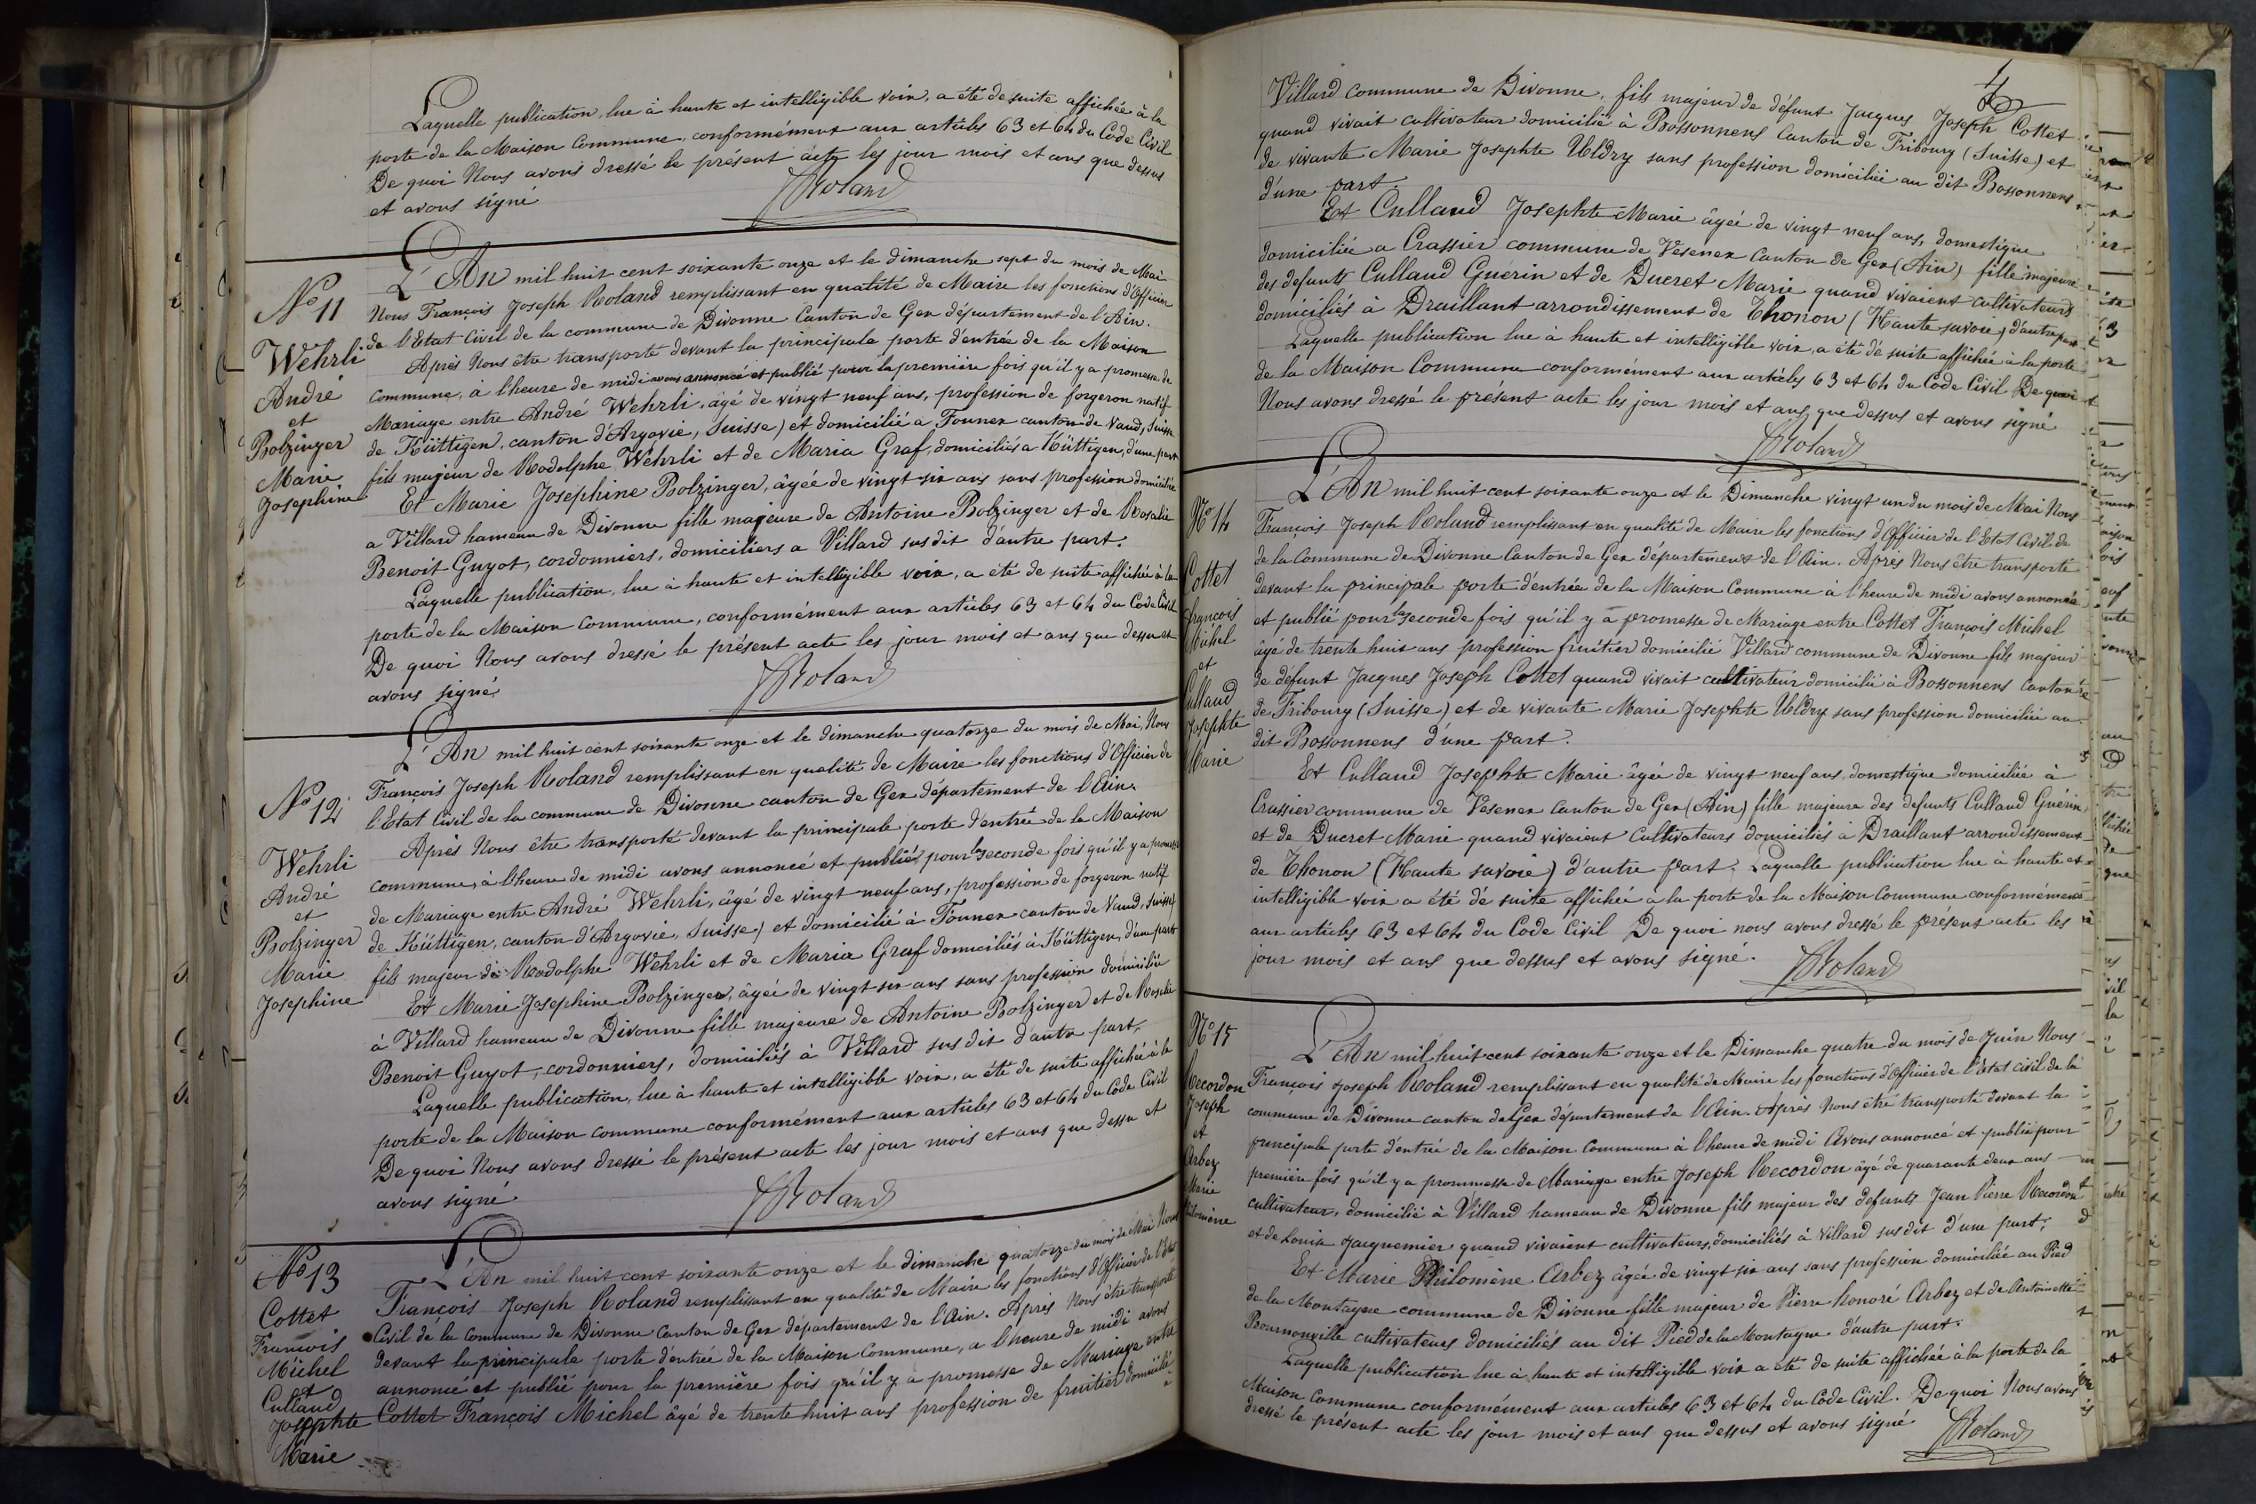 Laquelle publication, lue à haute et intelligible voix, a été de suite affichée à la
porte de la Maison Commune, conformément aux articles 63 et 64 du Code Civil
De quoi Nous avons dressé le présent acte les jour mois et ans que dessus
et avons signé
JRoland
L'An mil huit cent soixante onze et le dimanche sept du mois de Mai
Nous François Joseph Roland remplissant en qualité de Maire les fonctions d'Officier
de l'Etat Civil de la commune de Divonne Canton de Gex département de l'Ain.
Après Nous être transporté devant la principale porte d'entrée de la Maison
Commune, à l'heure de midi avons annoncé et publié pour la première fois qu'il y a promesse de
Mariage entre André Wehrli, âgé de vingt neuf ans, profession de forgeron natif
de Küttigen, canton d'Argovie, Suisse) et domicilié a Founex canton de Vaud, Suisse
fils majeur de Rodolphe Wehrli et de Maria Graf, domiciliés a Küttigen, d'une part
Et Marie Josephine Bolzinger, âgée de vingt-six ans sans profession domiciliée
a Villard hameau de Divonne fille majeure de Antoine Bolzinger et de Rosalie
Benoit Guyot, cordonniers, domiciliers a Villard susdit d'autre part.
Laquelle publication, lue à haute et intelligible voix, a été de suite affichée à la
porte de la Maison Commune, conformément aux articles 63 et 64 du Code Civil
De quoi Nous avons dressé le présent acte les jour mois et ans que dessu et
avons signé
JRoland
No 11
Wehrli
André
et
Bolzinger
Marie
Josephine
L'An mil huit cent soixante onze et le dimanche quatorze du mois de Mai, Nous
François Joseph Roland remplissant en qualité de Maire les fonctions d'Officier de
l'Etat Civil de la commune de Divonne canton de Gex département de l'Ain.
Après Nous être transporté devant la principale porte d'entrée de la Maison
commune, à l'heure de midi avons annoncé et publiés pour la seconde fois qu'il y a promesse
de Mariage entre André Wehrli, âgé de vingt neuf ans, profession de forgeron natif
de Küttigen, canton d'Argovie, Suisse) et domicilié à Founex canton de Vaud, Suisse
fils majeur de Rodolphe Wehrli et de Maria Graf domiciliés à Küttigen, d'une part
Et Marie Josephine Bolzinger, âgée de vingt six ans sans profession domiciliée
à Villard hameau de Divonne fille majeure de Antoine Bolzinger et de Rosalie
Benoit Guyot, cordonniers, domiciliés à Villard susdit d'autre part.
Laquelle publication, lue à haute et intelligible voix, a été de suite affichée à la
porte de la Maison commune conformément aux articles 63 et 64 du Code Civil
De quoi Nous avons dressé le présent acte les jour mois et ans que dessu et
avons signé
JRoland
No 12
Wehrli
André
et
Bolzinger
Marie
Josephine
L'An mil huit cent soixante onze et le dimanche quatorze du mois de Mai Nous
François Joseph Roland remplissant en qualité de Maire les fonctions d'Officier de l'Etat
Civil de la Commune de Divonne Canton de Gex département de l'Ain. Après Nous être transporté
devant la principale porte d'entrée de la Maison Commune, a l'heure de midi avons
annoncé et publié pour la première fois qu'il y a promesse de Mariage entre
Cottet François Michel âgé de trente huit ans profession de fruitier domicilié à
No 13
Cottet
François
Michel
et
Culland
Josephte
Marie
4
Villard commune de Divonne, fils majeur de défunt Jacques Joseph Cottet
quand vivait cultivateur domicilié à Bossonnens Canton de Fribourg (Suisse) et
de vivante Marie Josephte Uldry sans profession domiciliée au dit Bossonnens
d'une part.
Et Culland Josephte Marie âgée de vingt neuf ans, domestique
domiciliée a Crassier commune de Vesenex Canton de Gex (Ain) fille majeure
des defunts Culland Guérin et de Ducret Marie quand vivaient Cultivateurs
domiciliés à Draillant arrondissement de Thonon (Haute savoie) d'autre part
Laquelle publication lue à haute et intelligible voix, a été dé suite affichée à la porte
de la Maison Commune conformément aux articles 63 et 64 du Code Civil De quoi
Nous avons dressé le présent acte les jour mois et ans que dessus et avons signé
JRoland
L'An mil huit cent soixante onze et le Dimanche vingt un du mois de Mai Nous
François Joseph Roland remplissant en qualité de Maire les fonctions d'Officier de l'Etat Civil de
de la Commune de Divonne Canton de Gex département de l'Ain. Après Nous être transporté
devant la principale porte d'entrée de la Maison Commune à l'heure de midi avons annoncé
et publié pour la seconde fois qu'il y a promesse de Mariage entre Cottet François Michel
âgé de trente huit ans profession fruitier domicilié Villard commune de Divonne fils majeur
de défunt Jacques Joseph Cottet quand vivait cultivateur domicilié à Bossonnens Canton
de Fribourg (Suisse) et de vivante Marie Josephte Uldry sans profession domiciliée au
dit Bossonnens d'une part.
Et Culland Josephte Marie âgée de vingt neuf ans, domestique domiciliée à
Crassier commune de Vesenex Canton de Gex (Ain) fille majeure des defunts Culland Guérin
et de Ducret Marie quand vivaient Cultivateurs domiciliés à Draillant arrondissement
de Thonon (Haute savoie) d'autre part. Laquelle publication lue à haute et
intelligible voix a été dé suite affichée a la porte de la Maison Commune conformément
aux articles 63 et 64 du Code Civil De quoi nous avons dressé le présent acte les
jour mois et ans que dessus et avons signé.
JRoland
No 14
Cottet
François
Michel
et
Culland
Josephte
Marie
L'An mil huit cent soixante onze et le Dimanche quatre du mois de Juin Nous
François Joseph Roland remplissant en qualité de Maire les fonctions d'Officier de l'Etat civil de la
commune de Divonne canton de Gex département de l'Ain. Après Nous être transporté devant la
principale porte d'entrée de la Maison Commune à l'heure de midi Avons annoncé et publié pour
première fois qu'il y a prommesse de Mariage entre Joseph Recordon âgé de quarante deux ans
cultivateur, domicilié à Villard hameau de Divonne fils majeur des defunts Jean Pierre Recordon
et de Louise Jacquemier quand vivaient cultivateurs, domiciliés à Villard susdit d'une part.
Et Marie Philomène Arbez âgée de vingt six ans sans profession domiciliée au Pied
de la Montagne commune de Divonne fille majeur de Pierre honoré Arbez et de Antoinette
Bournonville cultivateurs domiciliés au dit Pied de la Montagne d'autre part.
Laquelle publication lue à haute et intelligible voix a été de suite affichée à la porte de la
Maison commune conformément aux articles 63 et 64 du Code Civil. De quoi Nous avons
dressé le présent acte les jour mois et ans que dessus et avons signé
JRoland
No 15
Recordon
Joseph
et
Arbez
Marie
Philomène